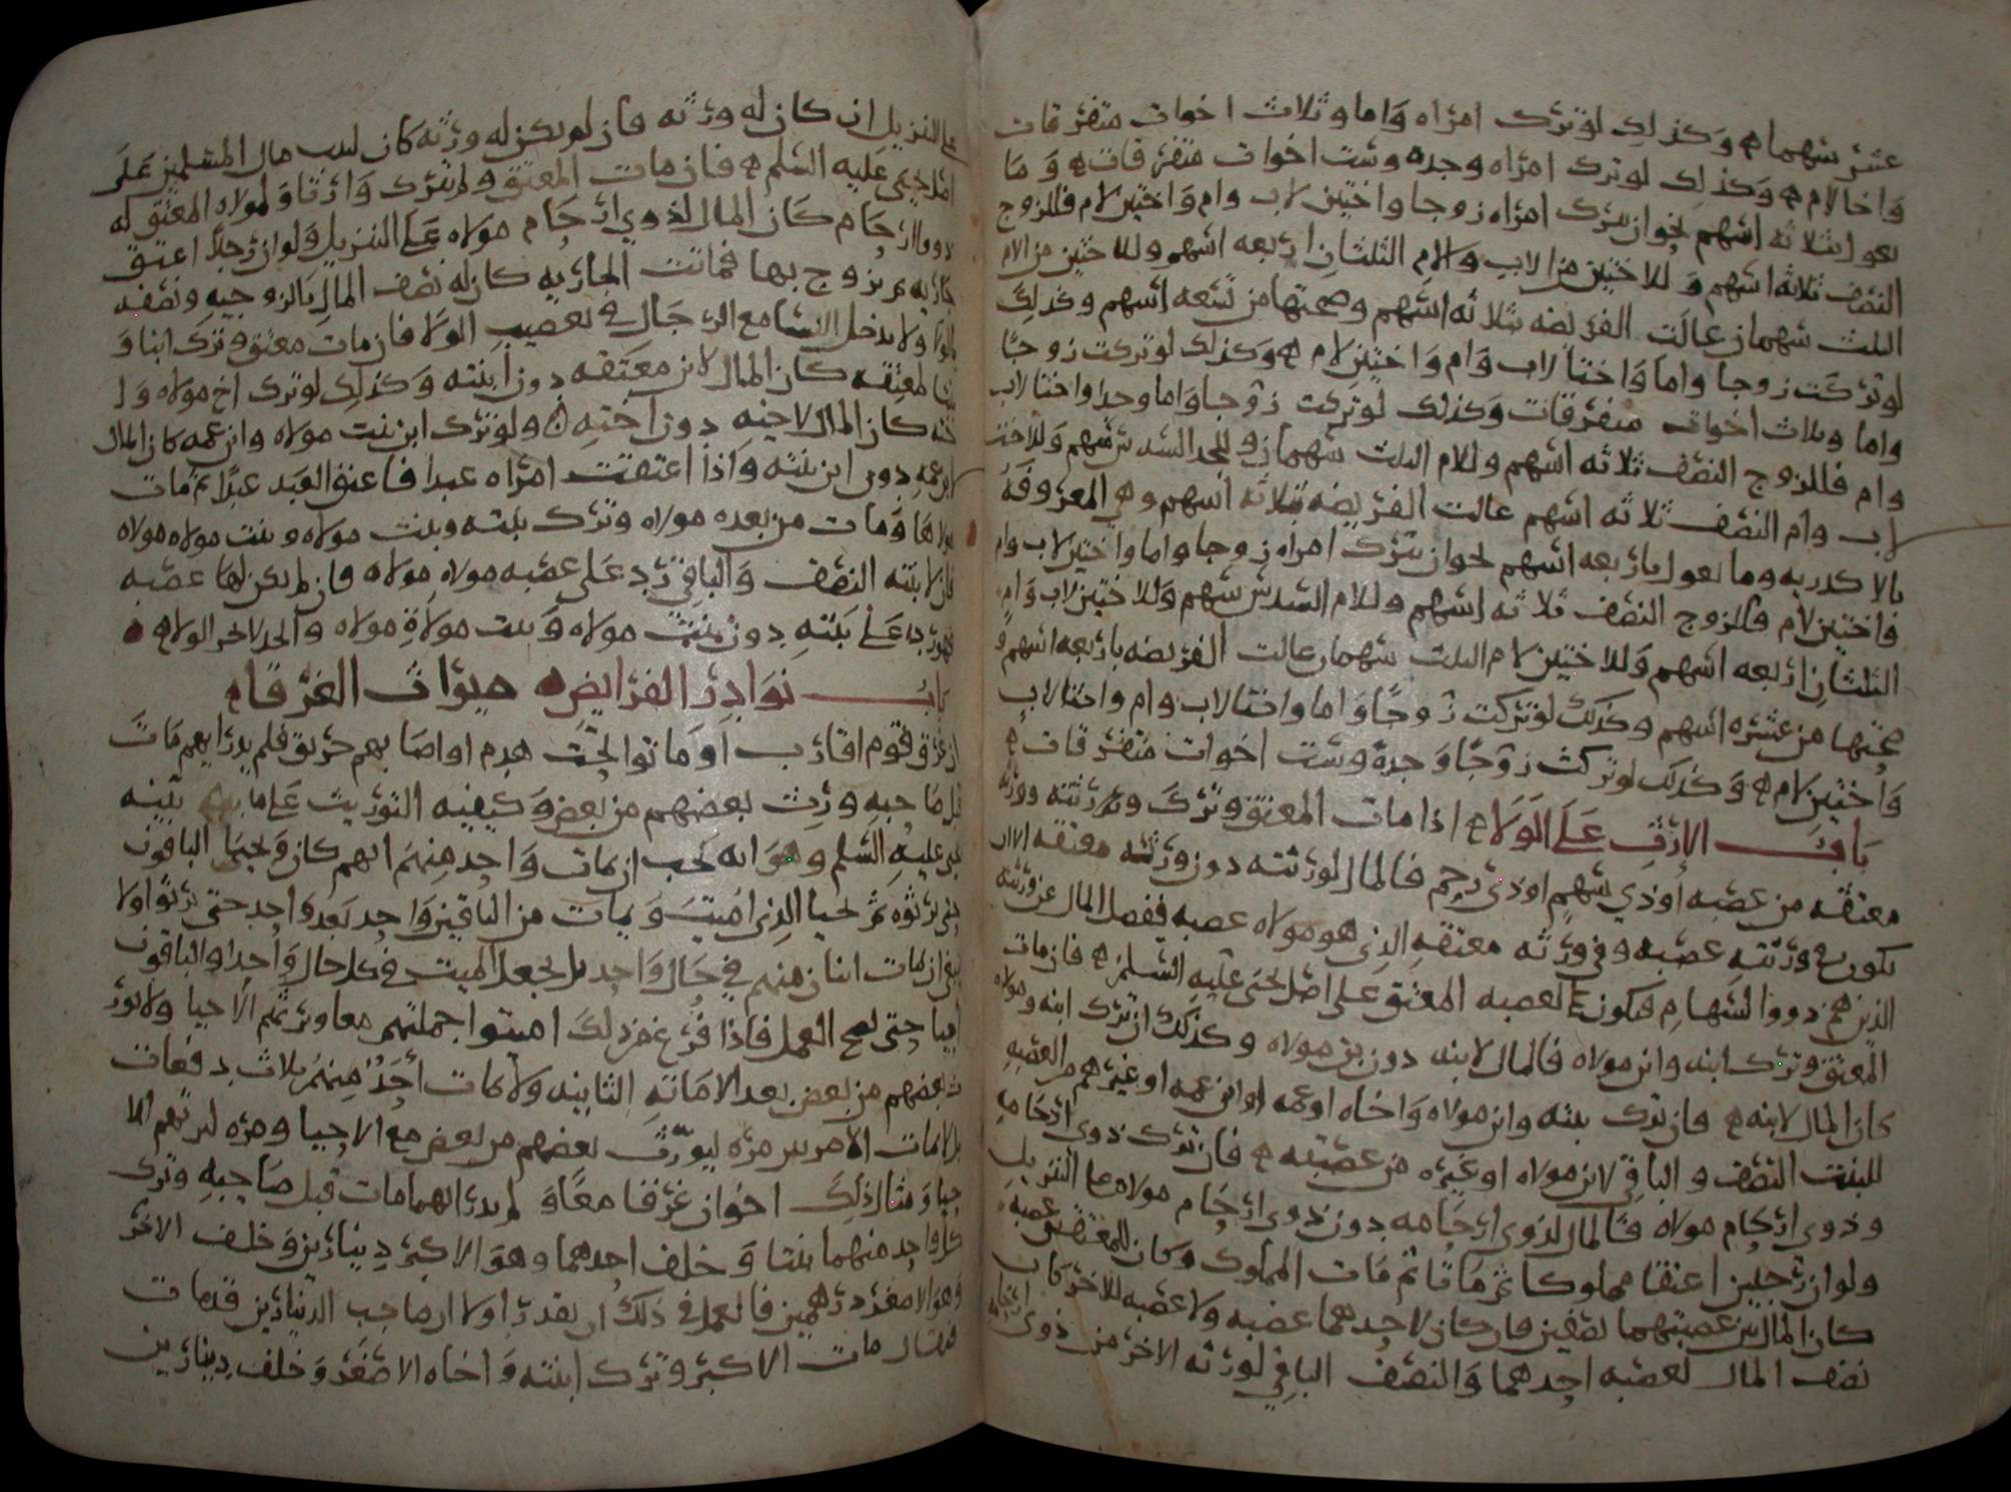 عشر سهما وكذلك لو ترك امراه واما وثلاث اخوات متفرقات
واخا لام وكذلك لو ترك امراه وجده وست اخوات متفرقات وما
يعول بثلاثه اسهم نحو ان تترك امراه زوجا واختين لاب وام واختين لام فللزوج
النصف ثلاثه اسهم وللاختين من الاب والام الثلثان اربعه اسهم وللاختين من الام
الثلث سهمان عالت الفريضه بثلاثه اسهم وصحتها من تسعه اسهم وكذلك
لو تركت زوجا واما واختا لاب وام واختين لام وكذلك لو تركت زوجا
واما وثلاث اخوات متفرقات وكذلك لو تركت زوجا واما وجدا واختا لاب
وام فللزوج النصف ثلاثه اسهم وللام الثلث سهمان وللجد السدس سهم وللاخت
لاب وام النصف ثلاثه اسهم عالت الفريضه بثلاثه اسهم وهي المعروفه
بالاكدريه وما يعول باربعه اسهم نحو ان تترك امراه زوجا واما واختين لاب وام
واختين لام فللزوج النصف ثلاثه اسهم وللام السدس سهم وللاختين لاب وام
الثلثان اربعه اسهم وللاختين لام الثلث سهمان عالت الفريضه باربعه اسهم و
صحتها من عشره اسهم وكذلك لو تركت زوجا واما واختا لاب وام واختا لاب
واختين لام وكذلك لو تركت زوجا وجدة وست اخوات متفرقات
باب الارث على الولاء اذا مات المعتق وترك ورثته وورثه
معتقه من عصبه او ذي سهم او ذي رحم فالمال لورثته دون ورثه معتقه الا ان
يكون في ورثته عصبه وفي ورثه معتقه الذي هو مولاه عصبه ففضل المال عن ورثته
الذين هم ذووا السهام فيكون لعصبه المعتق على اصل يحيى عليه السلم فان مات
المعتق وترك ابنه وابن مولاه فالمال لابنه دون بن مولاه وكذلك ان ترك ابنه ومولاه
كان المال لابنه فان ترك بنته وابن مولاه واخاه او عمه او ابن عمه او غيرهم من العصبه
للبنت النصف والباقي لابن مولاه او غيره من عصبته فان ترك ذوي ارحامه
وذوي ارحام مولاه فالمال لذوي ارحامه دون ذوي ارحام مولاه على التنزيل
ولو ان رجلين اعتقا مملوكا ثم ماتا ثم مات المملوك وكان للمعتقين عصبه
كان المال بين عصبتهما نصفين فان كان لاحدهما عصبه ولا عصبه للاخر كان
نصف المال لعصبه احدهما والنصف الباقي لورثه الاخر من ذوي ارحامه
على التنزيل ان كان له ورثه فان لم يكن له ورثه كان لبيت مال المسلمين على
اصل يحيى عليه السلم فان مات المعتق ولم يترك وارثا ولمولاه المعتق له
ذووا ارحام كان المال لذوي ارحام مولاه على التنزيل ولو ان رجلا اعتق
جاريه ثم تزوج بها فماتت الجاريه كان له نصف المال بالزوجيه ونصفه
بالولا ولا يدخل النسا مع الرجال في تعصيب الولا فان مات معتق وترك ابنا و
بنتا لمعتقه كان المال لابن معتقه دون ابنته وكذلك لو ترك اخ مولاه و
اخته كان المال لاخيه دون اخته ولو ترك ابن بنت مولاه وابن عمه كان المال
لابن عمه دون ابن بنته واذا اعتقت امراه عبدا فاعتق العبد عبدا ثم مات
مولاها ومات من بعده مولاه وترك بنته وبنت مولاه وبنت مولاه مولاه
فان لابنته النصف والباقي رد على عصبه مولاه مولاه فان لم يكن لها عصبه
فهو رد على بنته دون بنت مولاه وبنت مولاة مولاه والجد لا يجر الولاء
باب نوادر الفرايض ميراث الغرقا
ان غرق قوم اقارب او ماتوا تحت هدم او اصابهم حريق فلم يدر ايهم مات
قبل صاحبه ورث بعضهم من بعض وكيفيه التوريث على ما بينه
يحيى عليه السلم وهو انه يجب ان يمات واحد منهم ايهم كان ويحيى الباقون
حتى يرثوه ثم يحيا الذي اميت ويمات من الباقين واحد بعد واحد حتى يرثوا ولا
ينبغي ان يمات اثنان منهم في حال واحد بل يجعل الميت في كل حال واحدا والباقون
احيا حتى يصح العمل فاذا فرغ من ذلك اميتوا جملتهم معا ويرثهم الاحيا ولا يورث
بعضهم من بعض بعد الاماته الثانيه ولا يمات احد منهم ثلاث دفعات
بل يمات الا مرتين مره ليورث بعضهم من بعض مع الاحيا ومره ليرثهم الا
حيا ومثال ذلك اخوان غرقا معا و لم يدر ايهما مات قبل صاحبه وترك
كل واحد منهما بنتا وخلف احدهما وهو الاكبر دينارين وخلف الاخر
وهو الاصغر درهمين فالعمل في ذلك ان يقدر اولا ان صاحب الدينارين قد مات
فيقال مات الاكبر وترك ابنته واخاه الاصغر وخلف دينارين